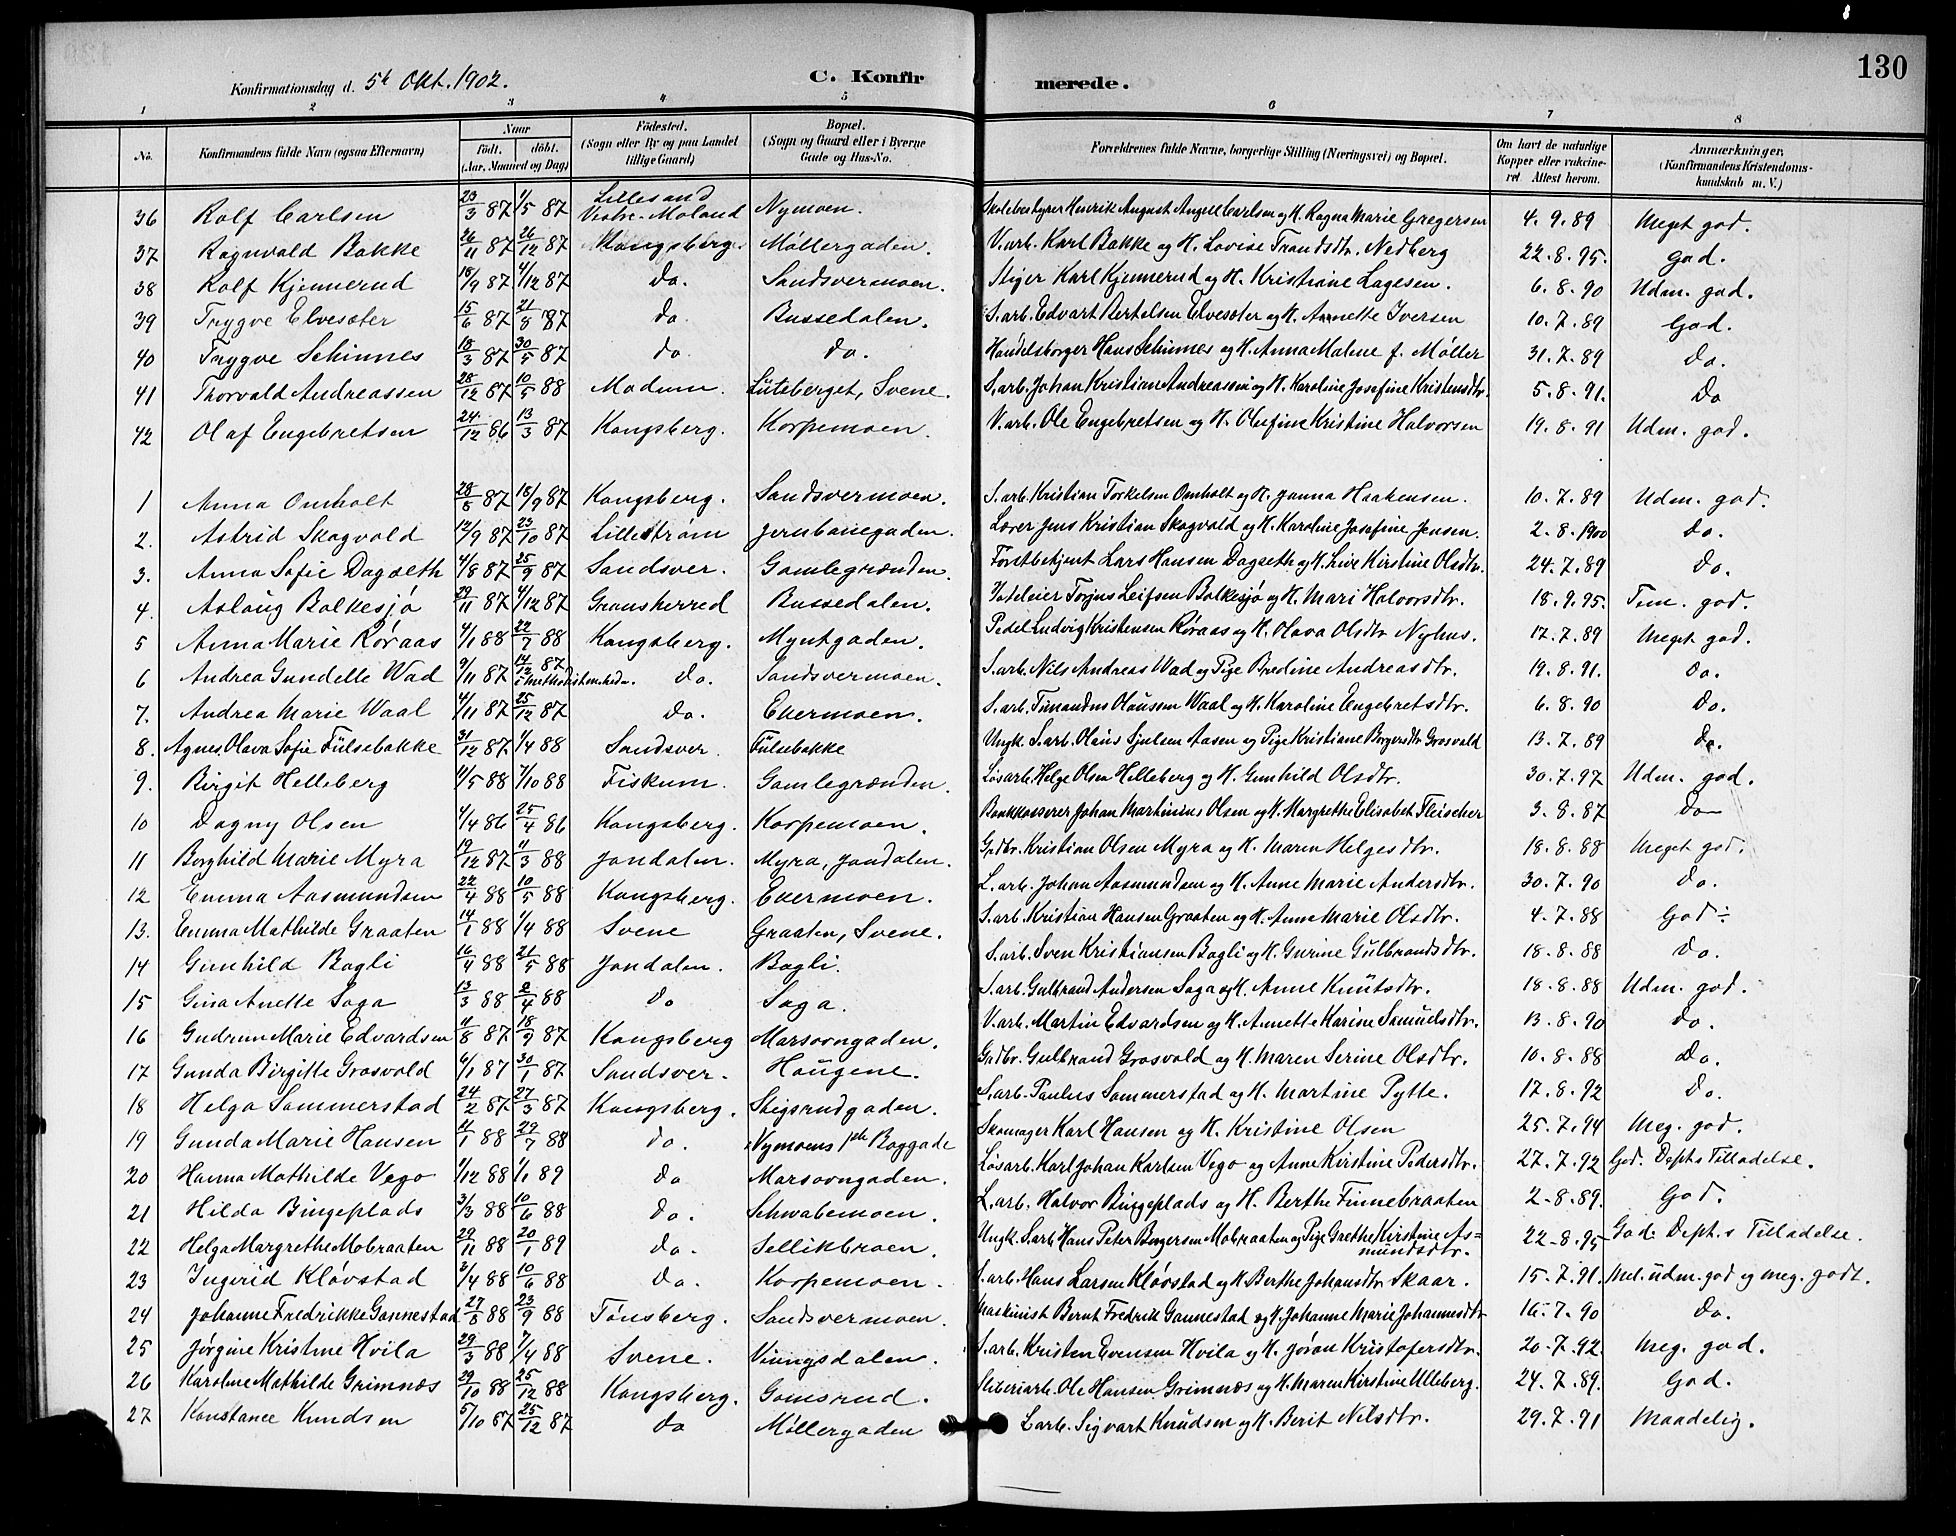 130
Konfirmationsdag d. 5te Okt. 1902. C. Konfirmerede.
1 2 3 4 5 6 7 8
No. Konfirmandens fulde Navn (ogsaa Efternavn) Naar født. døbt. (Aar, Maaned og Dag) Fødested. (Sogn eller By og paa Landet tillige Gaard) Bopæl. (Sogn og Gaard eller i Byerne Gade og Hus-No. Forældrenes fulde Navne, borgerlige Stilling (Næringsvei) og Bopæl. Om havt de naturlige Kopper eller vakcineret. Attest herom. Anmærkninger. (Konfirmandens Kristendomskundskab m. V.)
36 Rolf Carlsen 23/3 87 1/5 87 Lillesand Vestre-Moland Nymoen. Skolebestyrer Henrik August Angell Carlsen og H. Ragna Marie Gregersen 4.9.89 Meget god.
37 Ragnvald Bakke 26/11 87 26/12 87 Kongsberg. Møllergaden. V.arb. Karl Bakke og H. Lovise Trondsdtr. Nedberg 22.8.95. god.
38 Rolf Kjennerud 18/9 87 4/12 87 do. Sandsvermoen. Stiger Karl Kjennerud og H. Kristiane Lagesen. 6.8.90 Udm. god.
39 Trygve Elvesæter 15/6 87 21/8 87 do. Bussedalen. S.arb. Edvart Bertelsen Elvesæter og H. Annette Iversen 10.7.89 God.
40 Trygve Schinnes 18/3 87 30/5 87 do. do. Handelsborger Hans Schinnes og H. Anna Malene f. Møller 31.7.89 do.
41 Thorvald Andreassen 28/12 87 10/5 88 Modum. Luteberget, Svene. S.arb. Johan Kristian Andreassen og H. Karoline Josefine Kristensdtr. 5.8.91. Do
42 Olaf Engebretsen 24/12 86 13/3 87 Kongsberg. Korpemoen. V.arb. Ole Engebretsen og H. Olufine Kristine Halvorsen 19.8.91 Udm. god.
1 Anna Omholt 28/5 87 18/9 87 Kongsberg. Sandsvermoen. S.arb. Kristian Torkelsen Omholt og H. Janna Haakensen. 10.7.89 Udm. god.
2. Astrid Skogvold 12/9 87 23/10 87 Lillestrøm Jernbanegaden. Lærer Jens Kristian Skogvold og H. Karoline Josefine Jensen. 2.8.1900 do.
3. Anna Sofie Dagseth 4/8 87 25/9 87 Sandsver. Gamlegrænden. Forstbetjent Lars Hansen Dagseth og H. Live Kirstine Olsdtr. 24.7.89 do.
4. Aslaug Bolkesjø 29/11 87 4/12 87 Gransherred Bussedalen. Hoteleier Torjus Leifsen Bolkesjø og H. Mari Halvorsdtr. 18.9.95. Tem. god.
5 Anna Marie Røraas 4/1 88 22/7 88 Kongsberg. Myntgaden. Pedel Ludvig Kristensen Røraas og H. Olava Olsdtr Nyhus. 17.7.89 Meget god.
6 Andrea Gundelle Wad 9/11 87 14/12 87 i Methodistmenighed. do. Sandsvermoen. S.arb. Nils Andreas Wad og Pige Bredine Andreasdtr. 19.8.91. do.
7. Andrea Marie Waal 4/11 87 25/12 87 do. Ekermoen. S.arb. Timandus Olausen Waal og H. Karoline Engebretsdtr. 6.8.90 do.
8. Agnes Olava Sofie Fulsebakke 31/12 87 1/4 88 Sandsver. Fulsebakke Ungk. S.arb. Olaus Sjulsen Aasen og Pige Kristiane Borgersdtr Grosvold 13.7.89 do.
9. Birgit Helleberg 11/5 88 7/10 88 Fiskum. Gamlegrænden. Løsarb. Helge Olsen Helleberg og H. Gunhild Olsdtr. 30.7.97 Udm. god.
10 Dagny Olsen 4/4 86 25/4 86 Kongsberg. Korpemoen. Bankkasserer Johan Martinius Olsen og H. Margrethe Elisabet Fleischer 3.8.87 do
11 Borghild Marie Myra 19/12 87 11/3 88 Jondalen. Myra, Jondalen. Grdbr. Kristian Olsen Myra og H. Maren Helgesdtr. 18.8.88 Meget god.
12 Emma Aasmundsen 22/4 88 10/5 88 Kongsberg. Ekermoen. L.arb. Johan Aasmundsen og H. Anne Marie Andersdtr. 30.7.90 do.
13. Emma Mathilde Graaten 14/1 88 1/4 88 Svene Graaten, Svene. S.arb. Kristian Hansen Graaten og H. Anne Marie Olsdtr. 4.7.88 God ÷
14 Gunhild Bagli 16/4 88 21/5 88 Jondalen. Bagli. S.arb. Sven Kristiansen Bagli og H. Gurine Gulbrandsdtr. 18.8.88 do.
15 Gina Anette Saga 13/3 88 2/4 88 do Saga. S.arb. Gulbrand Andersen Saga og H. Anne Knutsdtr. 18.8.88 Udm. god.
16 Gudrun Marie Edvardsen 11/8 87 18/9 87 Kongsberg Marsovngaden. V.arb. Martin Edvardsen og H. Annette Karine Samuelsdtr. 13.8.90 do.
17 Gunda Birgitte Grosvold 4/1 87 30/1 87 Sandsver. Haugene. Grdbr. Gulbrand Grosvold og H. Maren Serine Olsdtr. 10.8.88 Do.
18 Helga Sommerstad 24/2 87. 27/3 87 Kongsberg. Stigsrudgaden. S.arb. Paulus Sommerstad og H. Martine Pytte. 17.8.92 Do.
19 Gunda Marie Hansen 11/1 88 29/7 88 do. Nymoens 1ste Baggade Skomager Karl Hansen og H. Kristine Olsen 25.7.94 Meg. god.
20 Hanna Mathilde Vego 1/12 88 1/1 89 do Marsovngaden. Løsarb. Karl Johan Karlsen Vego og Anne Kirstine Pedersdtr. 27.7.92 God. Depts Tilladelse.
21 Hilda Bingeplads 3/3 88 10/6 88 do. Schwabemoen. L.arb. Halvor Bingeplads og H. Berthe Finnebraaten 2-8.89. God.
22 Helga Margrethe Mobraaten 29/11 88 20/1 89 do. Sellikbroen. Ungk. S.arb. Hans Peter Borgersen Mobraaten og Pige Grethe Kirstine Asmundsdtr. 22-8.95 God: Dept.s Tilladelse.
23 Ingerid Kløvstad 2/4 88 10/6 88 do. Korpemoen. S.arb. Hans Larsen Kløvstad og H. Berthe Johansdtr. Skaar. 15.7.91. Mel. udm. god og meg. godt.
24 Johanne Fredrikke Gannestad 27/8 88 23/9 88 Tønsberg. Sandsvermoen. Maskinist Bernt Fredrik Gannestad og H. Johanne Marie Johannesdtr 16.7.90 do.
25 Jørgine Kristine Hvila 29/3 88 7/4 88 Svene. Vinngsdalen. S.arb. Kristen Evensen Hvila og H. Jøran Kristofersdtr. 20.7.92. Meg. god.
26 Karoline Mathilde Grimnæs 29/10 88 25/12 88 Kongsberg. Gomsrud. Sliberiarb. Ole Hansen Grimnæs og H. Maren Kirstine Ulleberg. 24.7.89. God.
27 Konstance Knudsen 5/10 87 25/12 87 do Møllergaden L.arb. Sigvart Knudsen og H. Berit Nilsdtr. 29.7.91 Maadelig.